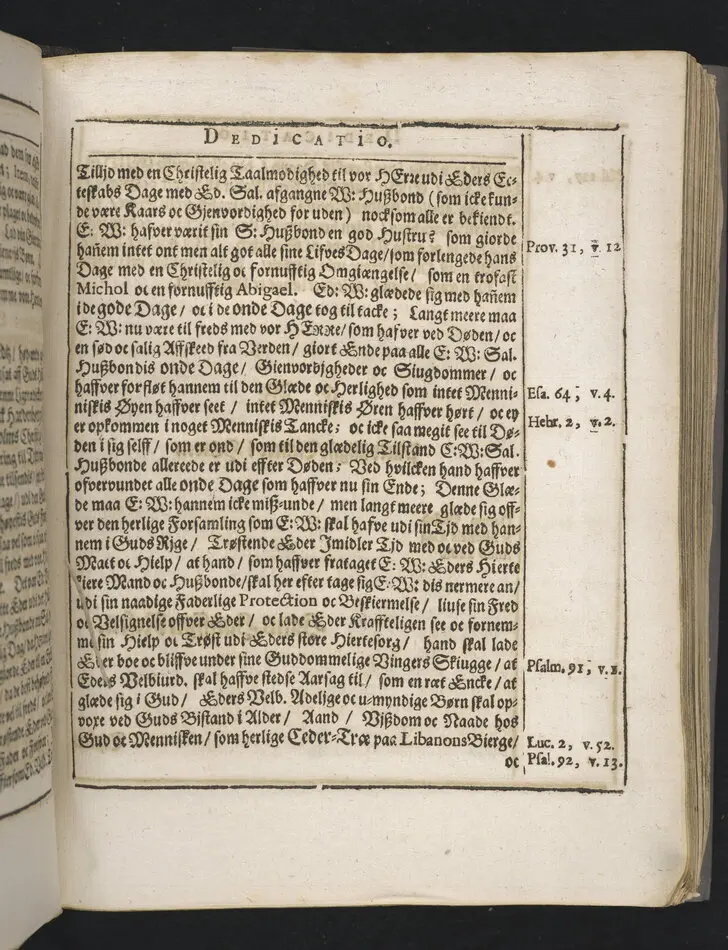 DEDICATIO.
Tilljd med en Christelig Taalmodighed til vor HErre udi Eders Ec-
teskabs Dage med Ed. Sal. afgangne W: Hußbond (som icke kun-
de være Kaars oc Gjenvordighed for uden) nocksom alle er bekiendt.
E. W: hafver værit sin S: Hußbond en god Hustru? som giorde
hañem intet ont men alt got alle sine Lifves Dage/som forlengede hans
Prov. 31, v. 12
Dage med en Christelig oc fornufftig Omgiængelse/ som en trofast
Michol oc en fornufftig Abigael. Ed: W: glædede sig med hañem
i de gode Dage/ oc i de onde Dage tog til tacke; Langt meere maa
E: W: nu være til freds med vor HErre/som hafver ved Døden/ oc
en sød oc salig Affskeed fra Verden/ giort Ende paa alle E: W: Sal.
Hußbondis onde Dage/ Gienvordjgheder oc Siugdommer/ oc
haffver forfløt hannem til den Glæde oc Herlighed som intet Menni-
Esa. 64, v. 4.
niskis Øyen haffver seet/ intet Menniskis Øren haffver hørt/ oc ey
er opkommen i noget Menniskis Tancke; oc icke saa megit see til Dø-
Hebr. 2, v. 2.
den i sig selff/ som er ond/ som til den glædelig Tilstand E: W: Sal.
Hußbonde allereede er udi effter Døden; Ved hvilcken hand haffver
ofvervundet alle onde Dage som haffver nu sin Ende; Denne Glæ-
de maa E: W: hannem icke miß-unde/ men langt meere glæde sig off-
ver den herlige Forsamling som E: W: skal hafve udi sin Tjd med han-
nem i Guds Rjge/ Trøstende Eder Imidler Tjd med oc ved Guds
Mact oc Hielp/ at hand/ som haffver frataget E: W: Eders Hierte
kiere Mand oc Hußbonde/skal her efter tage sig E: W: dis nermere an/
udi sin naadige Faderlige Protection oc Beskiermelse/ liuse sin Fred
oc Velsignelse offver Eder/ oc lade Eder Kraffteligen see oc fornem-
me sin Hielp oc Trøst udi Eders store Hiertesorg/ hand skal lade
Eder boe oc bliffve under sine Guddommelige Vingers Skiugge/ at
Psalm. 91, v. 1.
Eders Velbiurd. skal haffve stedse Aarsag til/ som en ræt Encke/ at
glæde sig i Gud/ Eders Velb. Adelige oc u-myndige Børn skal op-
voxe ved Guds Bjstand i Alder/ Aand/ Vjßdom oc Naade hos
Gud oc Mennisken/ som herlige Ceder-Træ paa Libanons Bierge/
Luc. 2, v. 52.
oc
Psal. 92, v. 13.